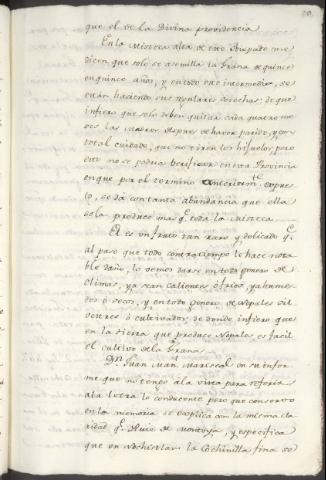 que el de la Divina providencia
En la Misteca alta de este Obispado me
dicen que solo se asemilla la Grana de quince
en quince años, y en todo este intermedio, se
estan haciendo sus regulares cosechas; de que
infiero que solo deben quitar cada quatro me
ses las Madres despues de haver parido, y con
total cuidado, que no tiren los hijuelos, pero
esto no se podra berificar en esta Provincia
en que por el termino anteriormte. expres
to, se da con tanta abundancia que ella
sola produce mas q. toda la Misteca.
El es un fruto tan raro y delicado q.
al paso que todo contratiempo le hace nota
ble daño, lo vemos darse en todo genero de
climas, ya sean calientes ó frios, ya humé
dos ó secos, y en todo genero de Nopales sil
vestres ó cultivados; de donde infiero que
en la tierra que produce Nopales es facil
el cultivo de la Grana.
Dn. Juan Man. Mariscal en su infor
me que no tengo á la vista para referir
á la letra lo conducente pero que conservo
en la memoria se explica con la misma cla
ridad q. Ruiz de Montoya, y especifica
que en Nochistlan la Cochinilla fina se